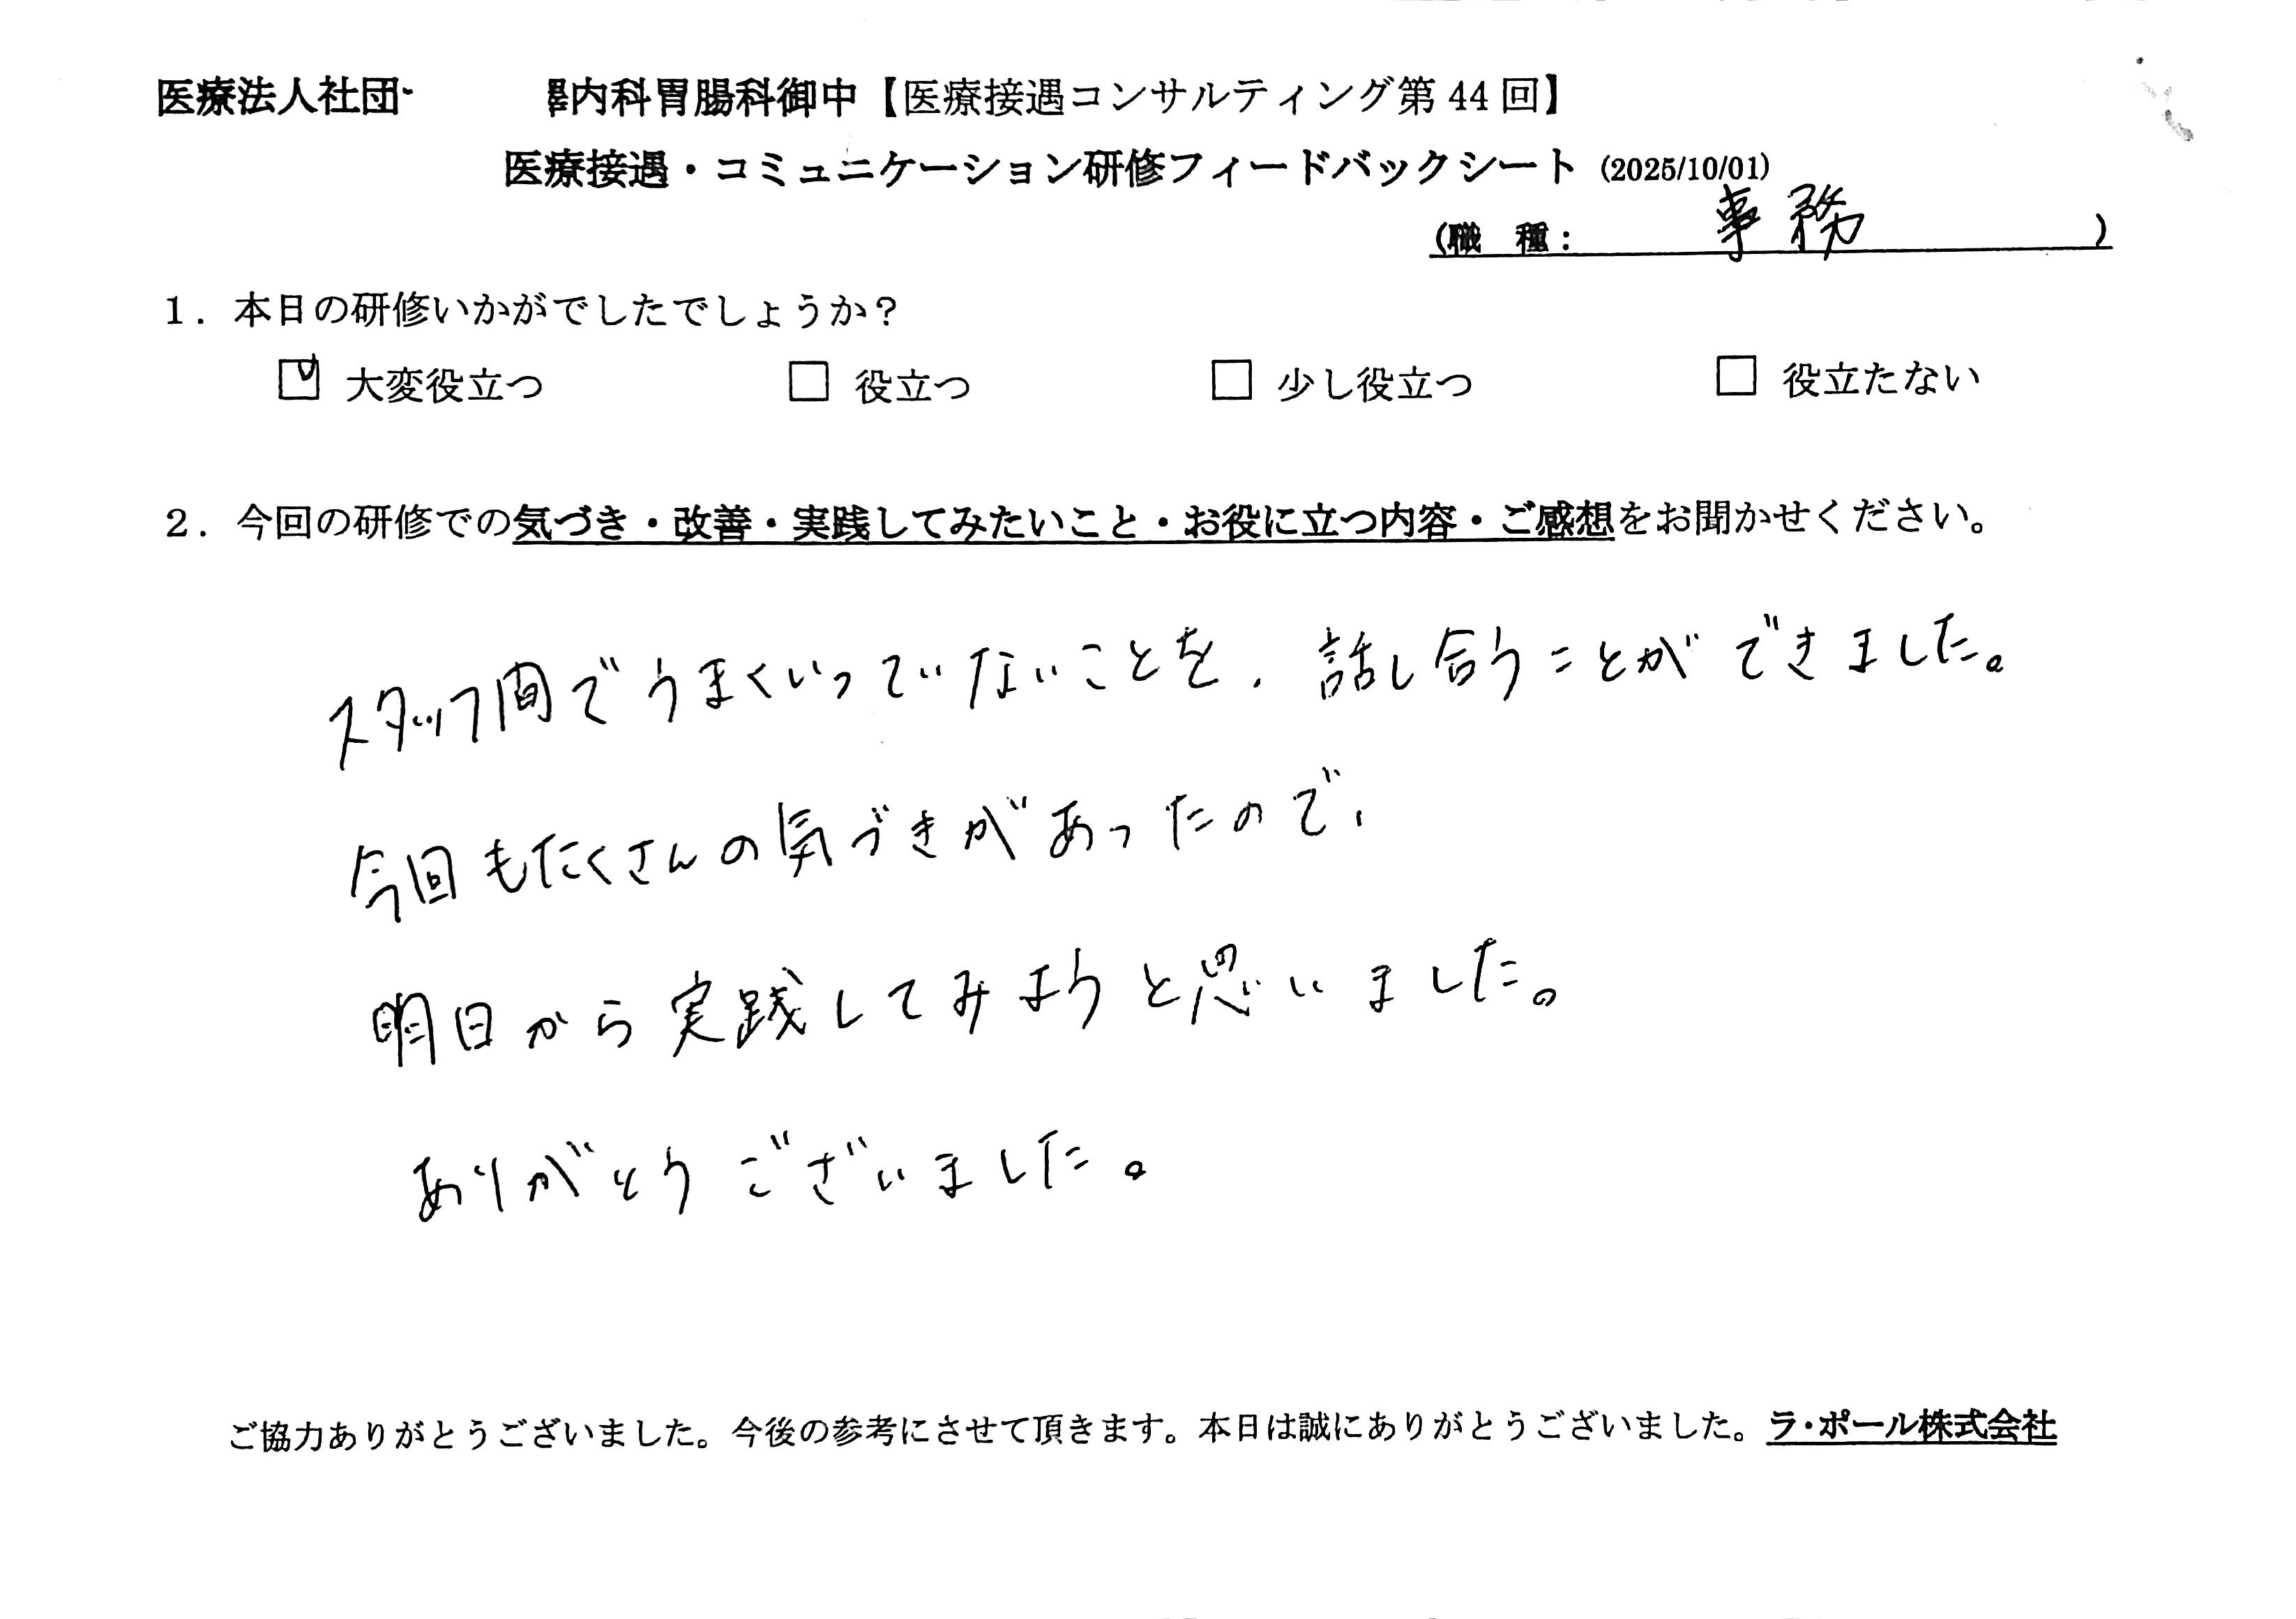 医療法人社団 内科胃腸科御中【医療接遇コンサルティング第 44 回】
医療接遇・コミュニケーション研修フィードバックシート (2025/10/01)
(職 種: 事務 )
1. 本日の研修いかがでしたでしょうか?
☑ 大変役立つ □ 役立つ □ 少し役立つ □ 役立たない
2. 今回の研修での気づき・改善・実践してみたいこと・お役に立つ内容・ご感想をお聞かせください。
スタッフ間でうまくいっていないことを、話し合うことができました。
今回もたくさんの気づきがあったので、
明日から実践してみようと思いました。
ありがとうございました。
ご協力ありがとうございました。今後の参考にさせて頂きます。本日は誠にありがとうございました。ラ・ポール株式会社